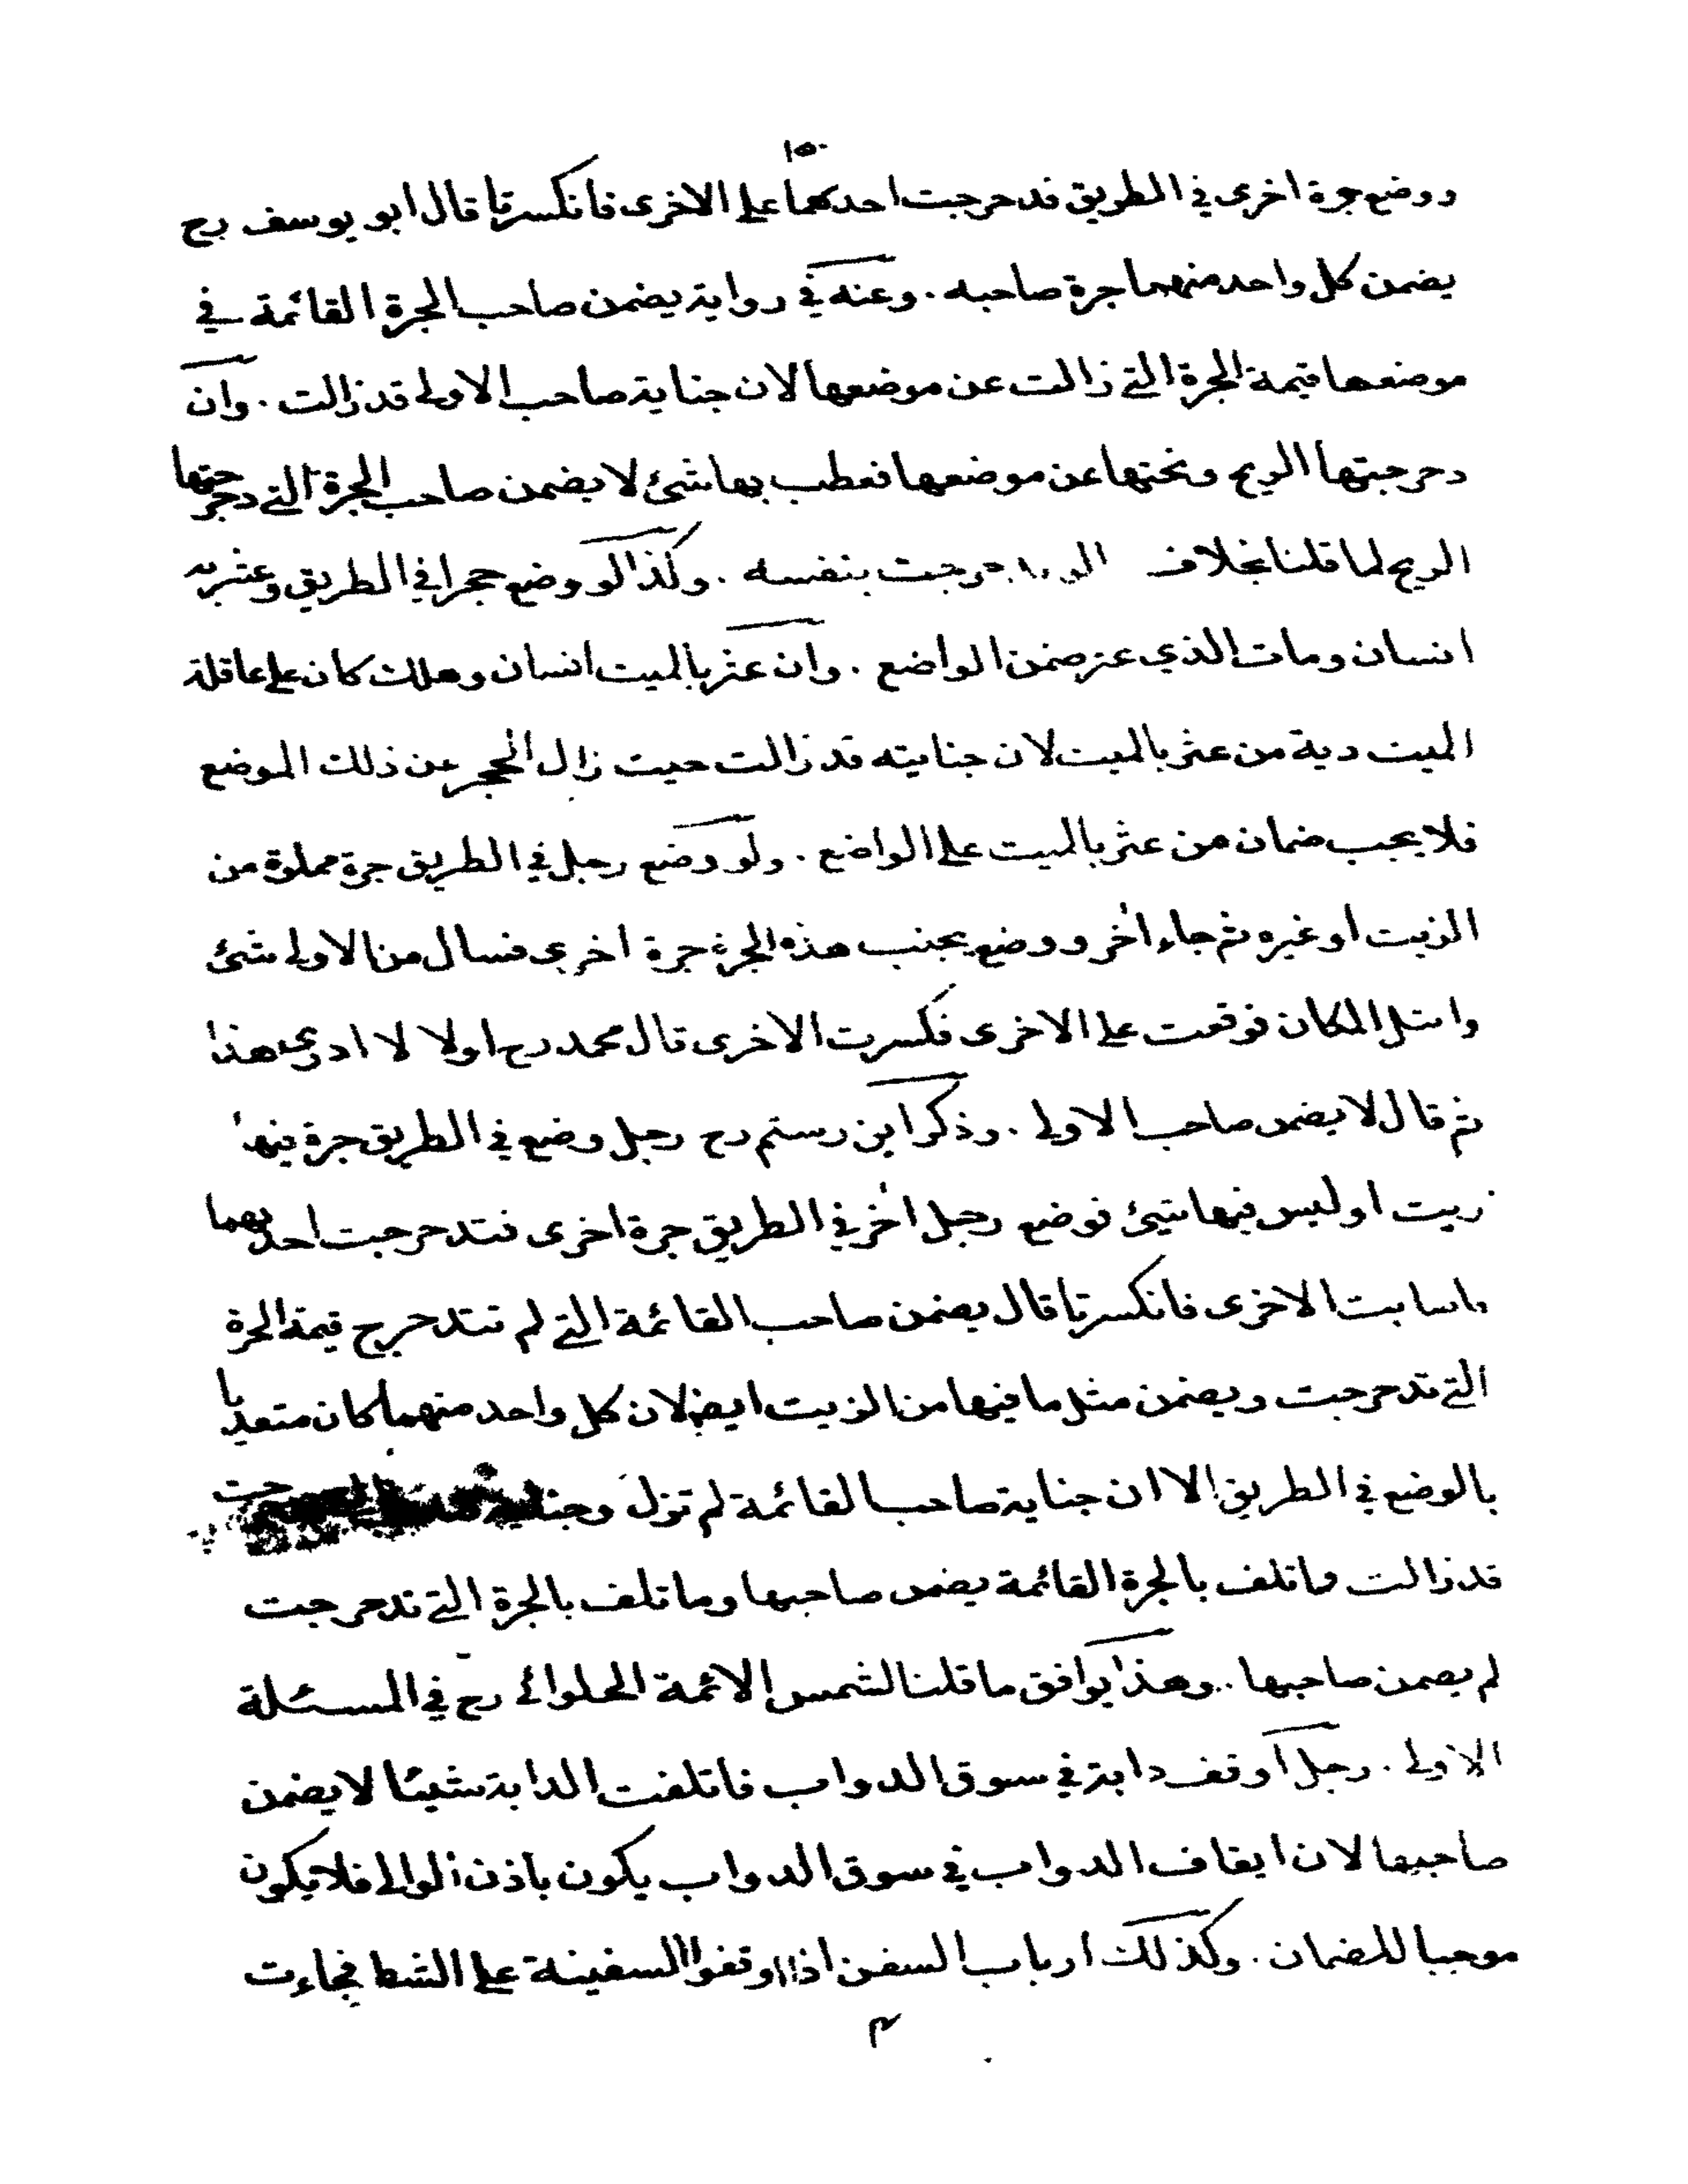 ١٥٠
ووضع جرة اخرى في الطريق فدحرجت احدٰهما على الاخرى فانكسرتا قال ابو يوسف رح
يضمن كل واحد منهما جرة صاحبه . وعنه في رواية يضمن صاحب الجرة القائمة في
موضعها قيمة الجرة التي زالت عن موضعها لان جناية صاحب الاولى قد زالت . وان
دحرجتها الريح ونحتها عن موضعها فعطب بها شئ لا يضمن صاحب الجرة التي دحرجتها
الريح لما قلنا بخلاف حرجت بنفسه . وكذا لو وضع حجرا في الطريق وعثر به
انسان ومات الذي عثر ضمن الواضع . وان عثر بالميت انسان وهلك كان على عاقلة
الميت دية من عثر بالميت لان جنايته قد زالت حيث زال الحجر عن ذلك الموضع
فلا يجب ضمان من عثر بالميت على الواضع . ولو وضع رجل في الطريق جرة مملوة من
الزيت او غيره ثم جاء اٰخر ووضع بجنب هذه الجرة جرة اخرى فسال من الاولى شئ
وابتل المكان فوقعت على الاخرى فكسرت الاخرى قال محمد رح اولا لا ادرى هذا
ثم قال لا يضمن صاحب الاولى . وذكر ابن رستم رح رجل وضع في الطريق جرة فيها
زيت او ليس فيها شئ فوضع رجل اٰخر في الطريق جرة اخرى فتدحرجت احدٰهما
واصابت الاخرى فانكسرتا قال يضمن صاحب القائمة التي لم تتدحرج قيمة الجرة
التي تدحرجت ويضمن مثل ما فيها من الزيت ايضا لان كل واحد منهما كان متعديا
بالوضع في الطريق الا ان جناية صاحب القائمة لم تزل وجناية
قد زالت فما تلف بالجرة القائمة يضمن صاحبها وما تلف بالجرة التي تدحرجت
لم يضمن صاحبها .. وهذا يوافق ما قلنا لشمس الائمة الحلوائى رح في المسئلة
الاولى . رجل اوقف دابة في سوق الدواب فاتلفت الدابة شيئا لا يضمن
صاحبها لان ايقاف الدواب في سوق الدواب يكون باذن الوالى فلا يكون
موجبا للضمان . وكذلك ارباب السفن اذا اوقفوا السفينة على الشط فجاءت